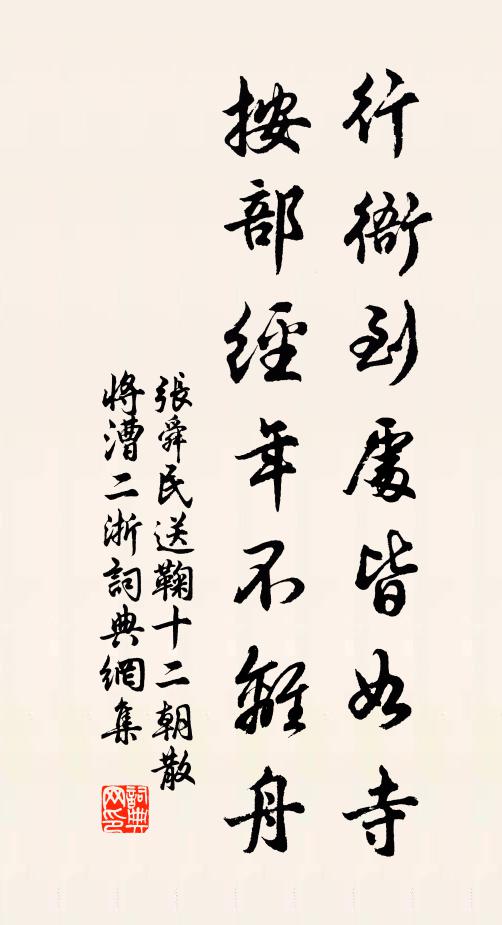 行衙到處皆如寺
按部經年不離舟
張舜民送鞠十二朝散
將漕二浙詞典網集
詞典
网印